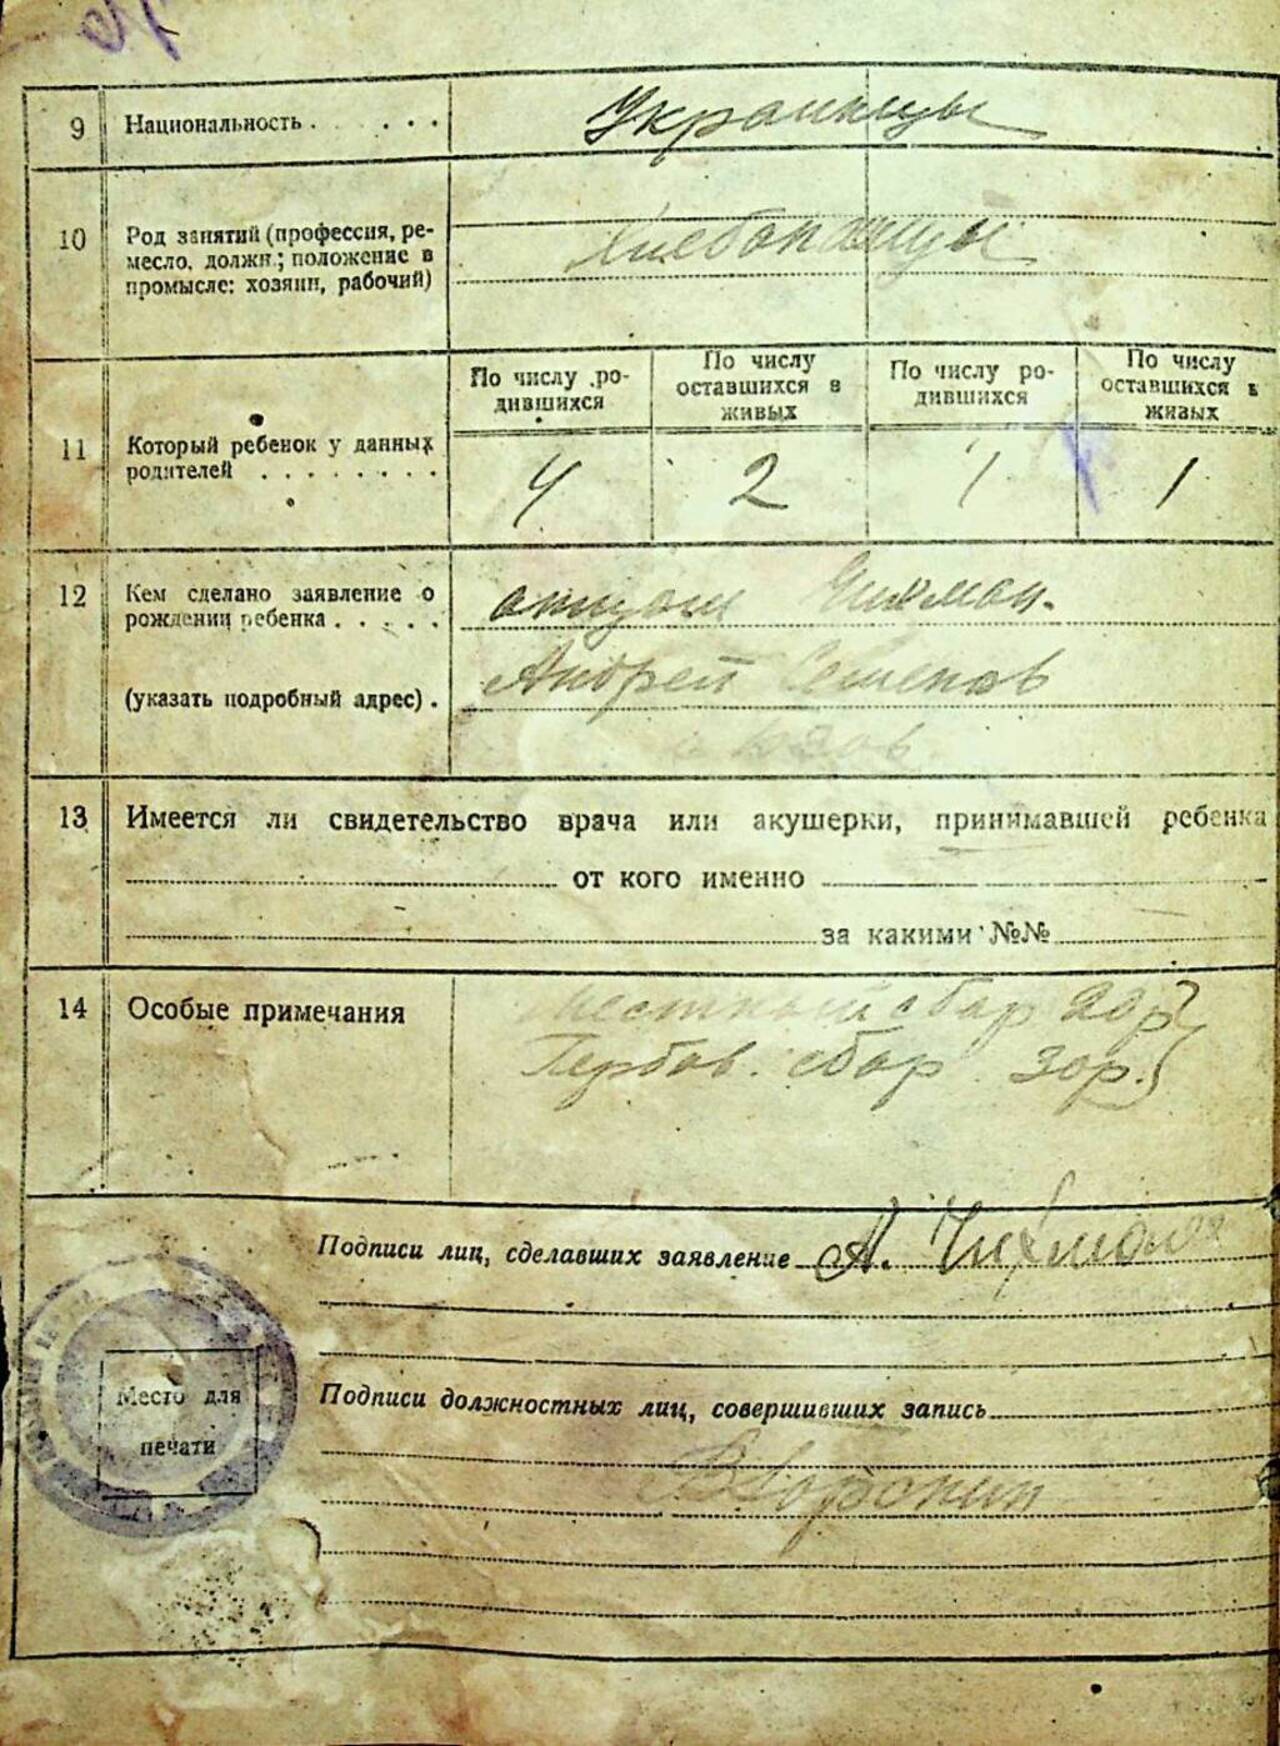 9 Национальность . . . . . Украинцы
10 Род занятий (профессия, ре-
месло, должн.; положение в
промысле: хозяин, рабочий)
Хлебопашцы
По числу ро-
дившихся
По числу
оставшихся в
живых
По числу ро-
дившихся
По числу
оставшихся в
живых
11 Который ребенок у данных
родителей . . . . . . . .
4 2 1 1
12 Кем сделано заявление о
рождении ребенка . . . . .
отцом Чихман.
(указать подробный адрес) .
Андрей Семенов
13 Имеется ли свидетельство врача или акушерки, принимавшей ребенка
от кого именно
за какими №№
14 Особые примечания
местный сбор 20р
Гербов. сбор 30р.
Подписи лиц, сделавших заявление А. Чихман
Место для
печати
Подписи должностных лиц, совершивших запись